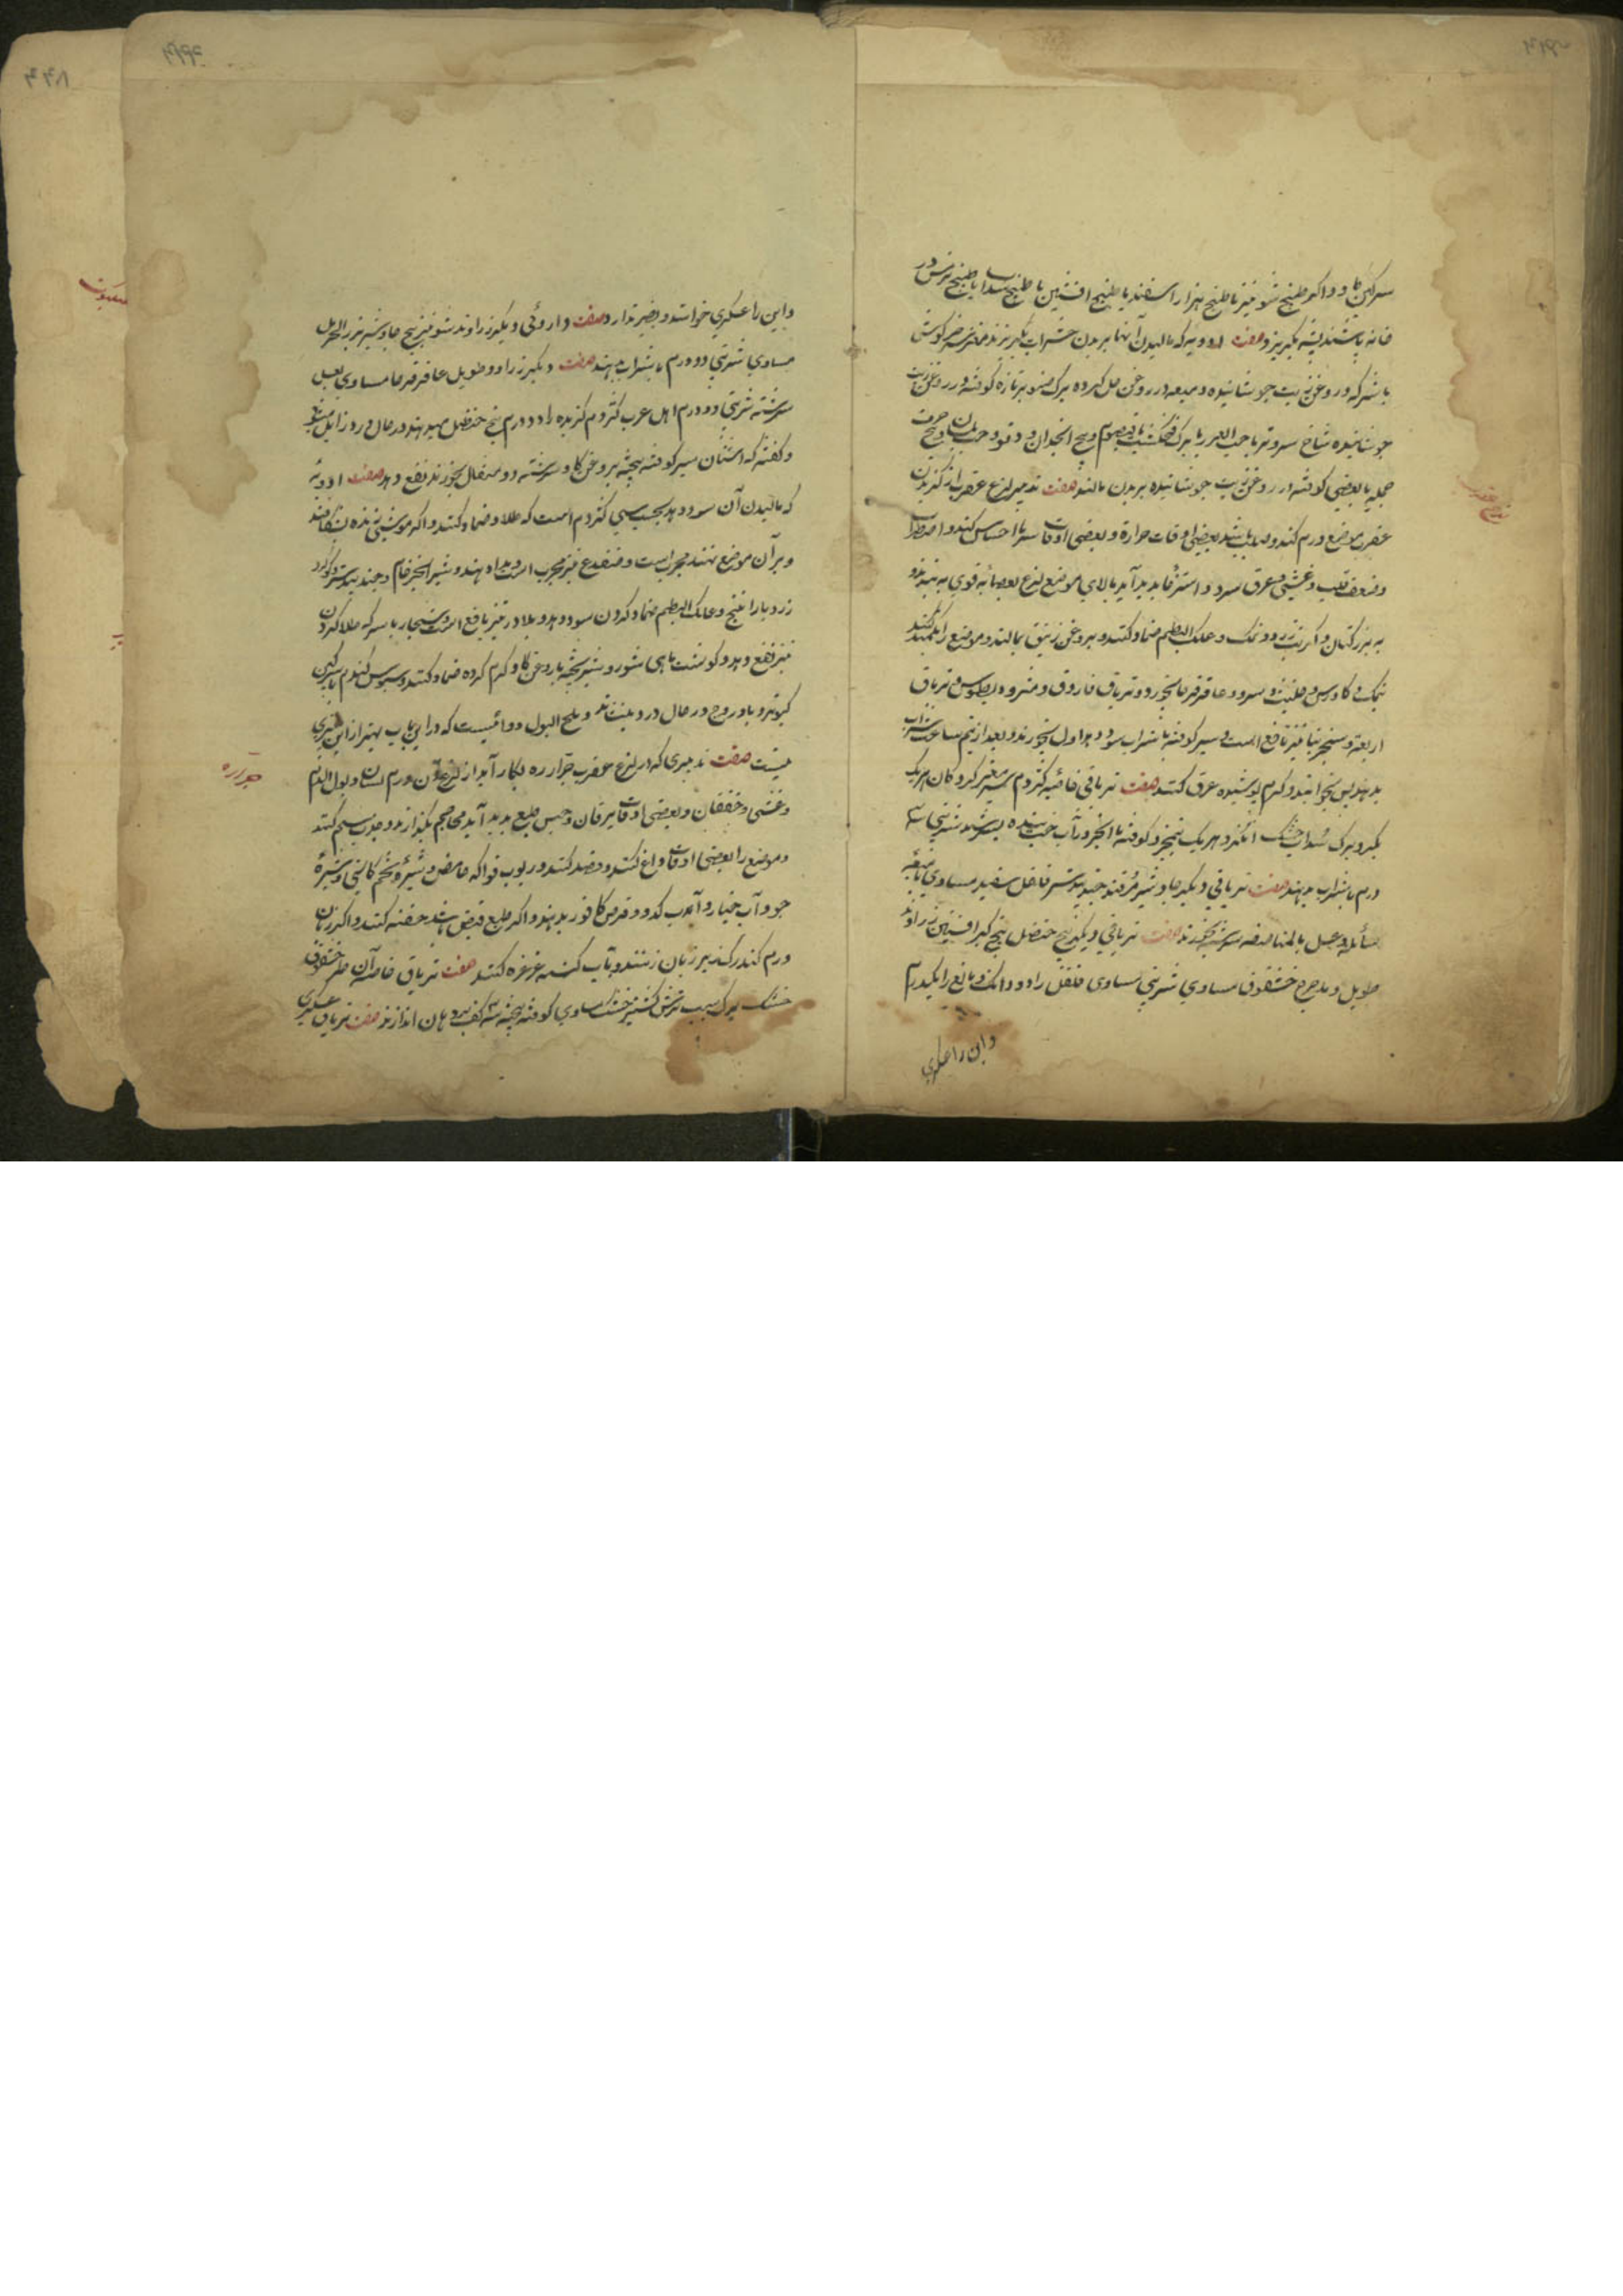 سرکین کاو و اکر طبیخ شونیز یا طبیخ هزار اسفند یا طبیخ افسنتین یا طبیخ سداب یا طبیخ ترمس در
خانه پاشند پشه بکریزد صفت ادویه که مالیدن آنها بر بدن حشرات بکریزند مغز سر خرکوش
با سرکه و روغن زیت جوشانیده و میعه در روغن حل کرده برک صنوبر تازه کوفته و در روغن زیت
جوشانیده شاخ سرو تر با حب العرعر یا برک فنجنکشت یا قیصوم و بیخ انجدان و دوقو و حب بلسان
جمله یا بعضی کوفته در روغن زیت جوشانیده بر بدن مالند صفت تدبیر لدغ عقرب از کزیدن
عقرب موضع ورم کند و صلب باشد بعضی اوقات حرارة و بعضی اوقات سرما احساس کند و اضطراب
و ضعف قلب و غشی و عرق سرد و استرخا پدید آید بالای موضع لدغ بعصابه قوی به بندند
به بزر کتان و کبریت زرد و نمک و علک البطم ضماد کنند و بروغن زنبق بمالند و موضع را تکمید کنند
بنمک و کاورس و حلتیت و سرو و عاقرقرحا بخورد و تریاق فاروق و مثرودیطوس و تریاق
اربعة و سنجرنیا نیز نافع است و سیر کوفته با شراب سود دهد اول بخورند و بعد از نیم ساعت شراب
بدهند پس بخوابند و کرم پوشیده عرق کنند صفت تریاقی خاصیه کژدم
بکیرد برک سداب خشک انکزد هر یک پنجزو کوفته با انجزو در آب خیسانیده بسرشند شربتی سه
درم با شراب بدهند صفت تریاقی دیکر جاوشیر مر قنه جندبیدستر فلفل سفید مساوی با میعه
سائله و عسل بالمناصفه سرشته بخورند صفت تریاقی دیکر بیخ حنضل بیخ کبر افسنتین زراوند
طویل و مدحرج خشقوق مساوی شربتی مساوی طفل را دو دانک و بالغ را یکدرم
واین را عسکری
تدبیر لدغ عقرب
واین را عسکری خوانند و نضیر ندارد صفت داروئی دیکر زراوند شونیز بیخ جاوشیر بزر الحرمل
مساوی شربتی دو درم با شراب بدهند صفت دیکر زراوند طویل عاقرقرحا مساوی بعسل
سرشته شربتی دو درم اهل عرب کژدم کزیده را دو درم بیخ حنظل میدهند در حال درد زایل میشود
و کفته که اشنان سیر کوفته بیخته بروغن کاو سرشته دو مثقال بخورند نفع دهد صفت ادویه
که مالیدن آن سود دهد بجهت سمی کژدم است که طلا و ضماد کنند و اکر موشی زنده بشکافند
و بر آن موضع نهند مجرب است و ضفدع نیز مجرب است و مداد هندی و شیر انجیر خام و جندبیدستر و کوکرد
زرد با رازیانج و علک البطم ضماد کردن سود دهد و بلادر نیز نافع است و سنجار با سرکه طلا کردن
نیز نفع دهد و کوشت ماهی شور و شیر پخته با روغن کاو کرم کرده ضماد کنند و سبوس کندم با سرکین
کبوتر و بادروج در حال درد بنشاند و ملح البول دوائیست که در این باب بهتر از این چیزی
نیست صفت تدبیری که در لدغ عقرب جراره بکار آید از لدغ آن ورم لسان و بول الدم
و غشی و خفقان و بعضی اوقات یرقان و حبس طبع پدید آید محاجم بکذارند و جذب سم کنند
و موضع را بعضی اوقات داغ کنند و فصد کنند و ربوب فواکه حامض و شیره تخم کاسنی و شیره
جو و آب خیار و آب کدو و قرص کافور بدهند و اکر طبع قبض باشد حقنه کنند و اکر زبان
ورم کند رک زیر زبان زنند و بآب کسنه غرغره کنند صفت تریاق خاصه آن طرخشقوق
خشک برک سیب ترش کشنیز خشک مساوی کوفته بیخته سه کف بدهان اندازند صفت تریاق عسکری
جراره